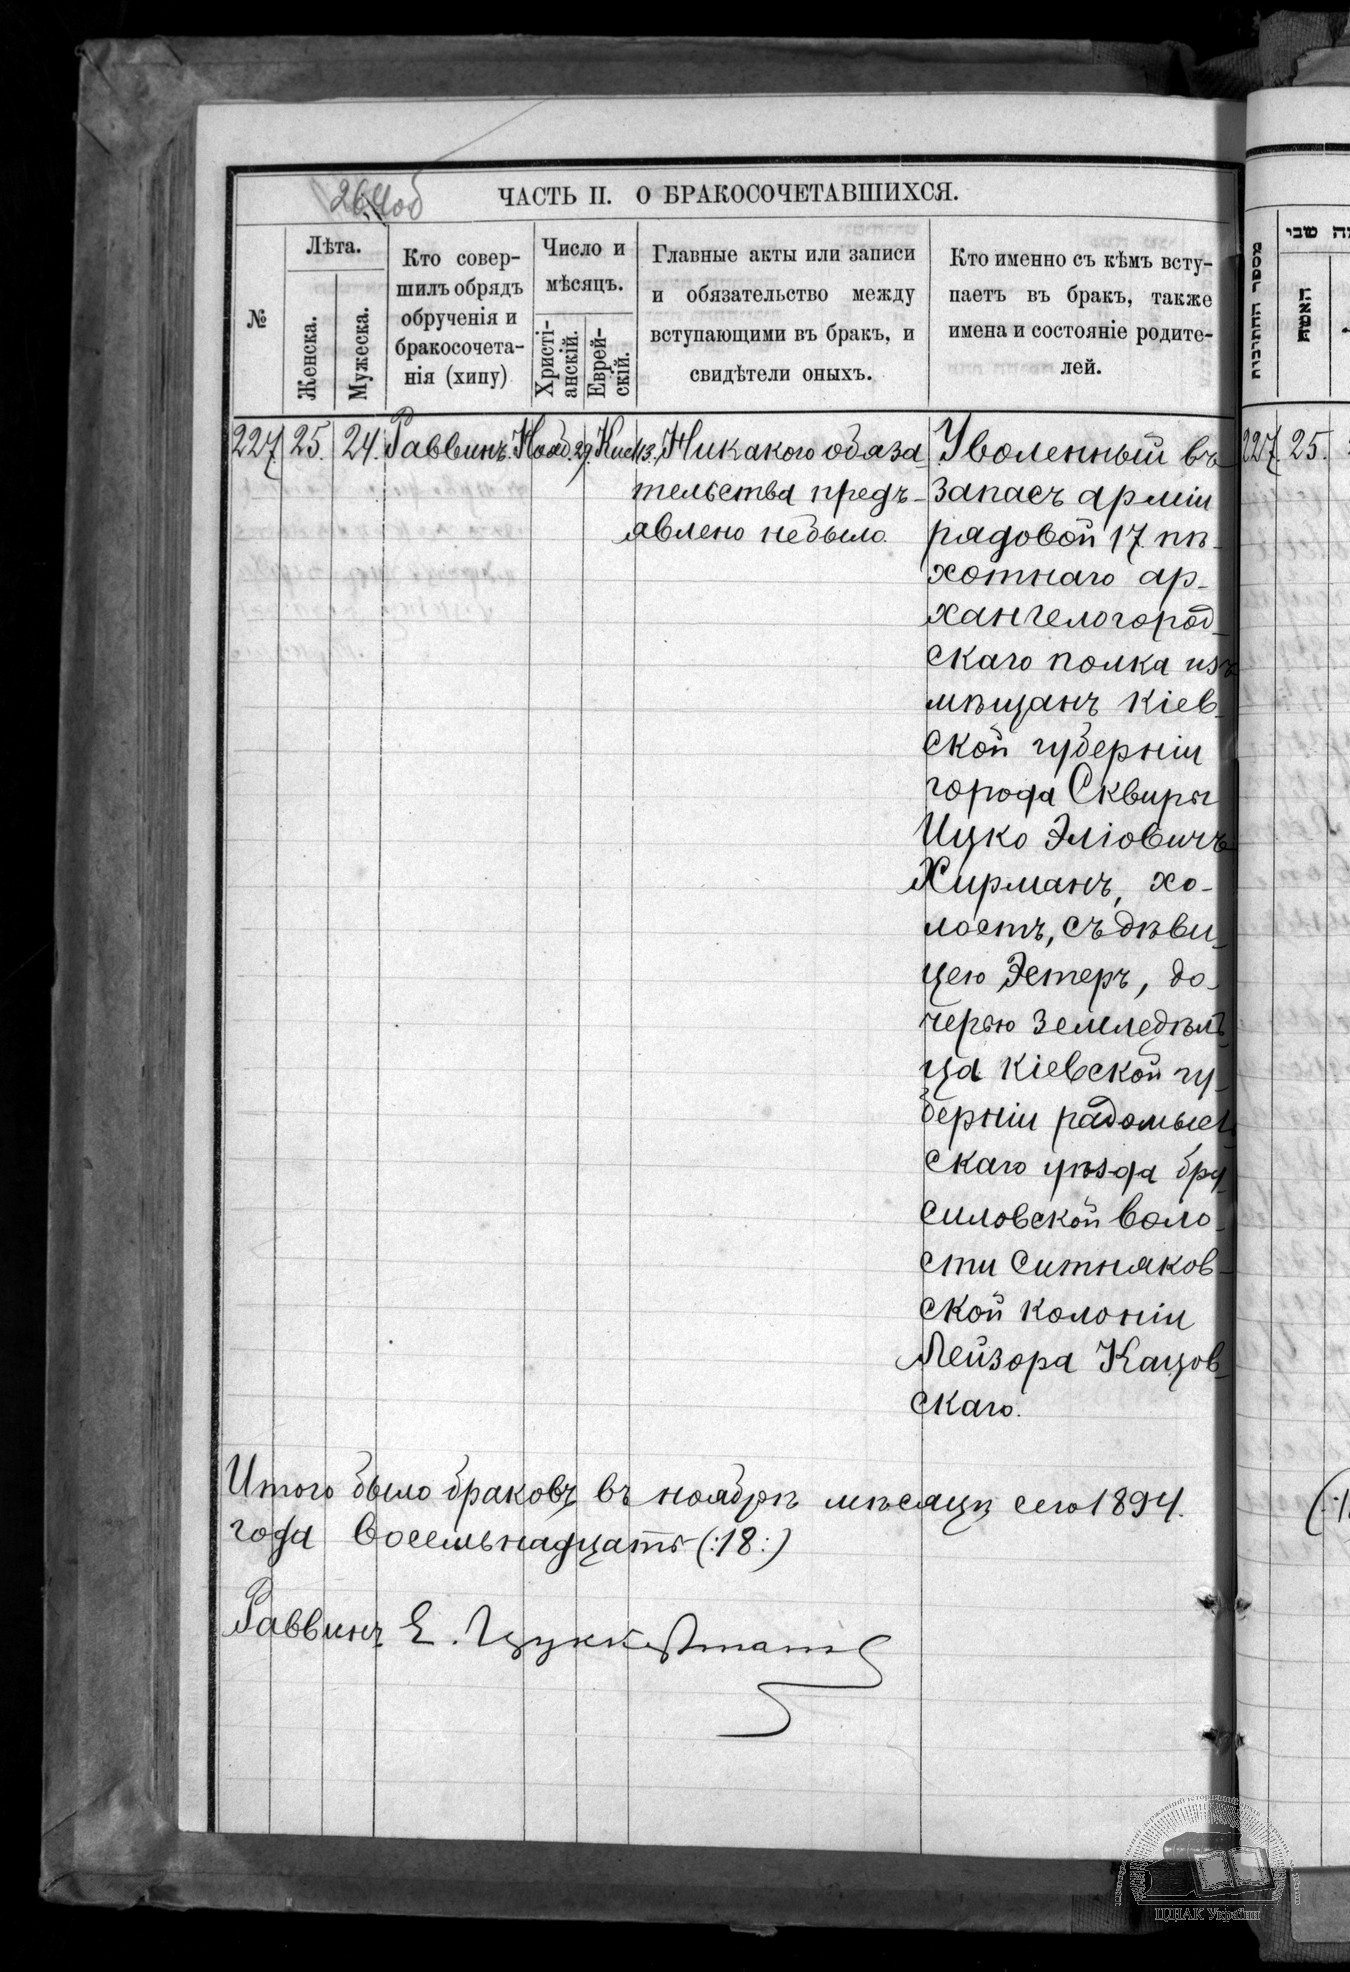 264об
ЧАСТЬ II. О БРАКОСОЧЕТАВШИХСЯ.
№
Лѣта.
Женска.
Мужеска.
Кто совер-
шилъ обрядъ
обрученія и
бракосочета-
нія (хипу)
Число и
мѣсяцъ.
Христі-
анскій.
Еврей-
скій.
Главные акты или записи
и обязательство между
вступающими въ бракъ, и
свидѣтели оныхъ.
Кто именно съ кѣмъ всту-
паетъ въ бракъ, также
имена и состояніе родите-
лей.
227. 25. 24. Раввинъ. Нояб. 29. Кис. 13.
Никакого обяза-
тельства предъ-
явлено небыло.
Уволенный въ
запасъ арміи
рядовой 17. пѣ-
хотнаго ар-
хангелогород-
скаго полка изъ
мѣщанъ Кіев-
ской губерніи
города Сквиры
Ицко Эліовичъ
Хирманъ, хо-
лостъ, съ дѣви-
цею Эстеръ, до-
черью земледѣль-
ца Кіевской гу-
берніи радомысль-
скаго уѣзда бру-
силовской воло-
сти Ситняков-
ской колоніи
Лейзора Кацов-
скаго.
Итого было браковъ въ ноябрѣ мѣсяцѣ сего 1894.
года восемьнадцать (:18:)
Раввинъ Е. Цуккерманъ
מספר החתונות
שני
האשה
227. 25.
ЦДІАК України